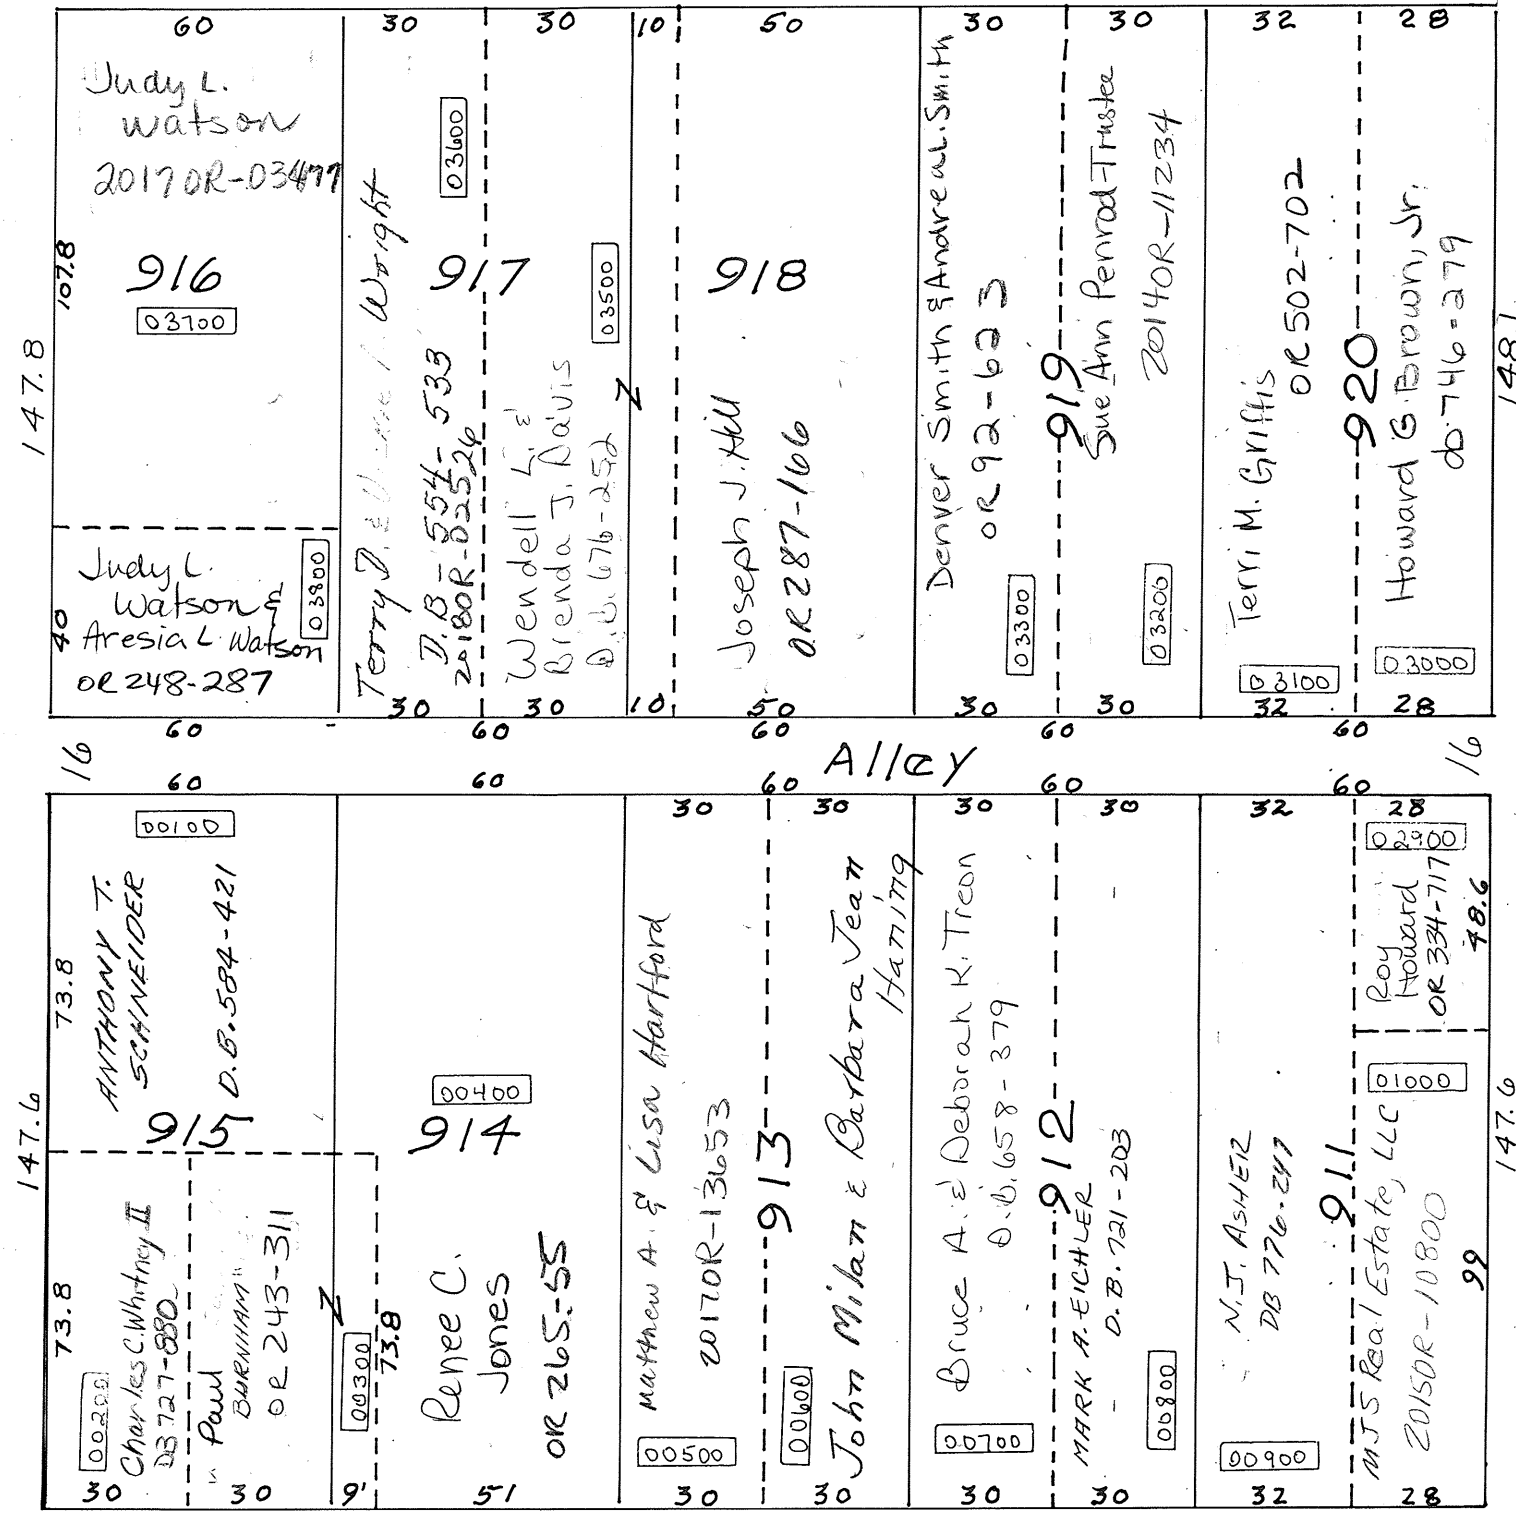 60
30
30
10
50
30
30
32
28
Judy L.
Watson
2017OR-03477
916
03700
107.8
147.8
Judy L.
Watson &
Aresia L. Watson
OR 248-287
03800
40
60
03600
Terry D. & Wright
D.B-554-533
2018OR-02526
917
03500
Wendell L. &
Brenda J. Davis
D.B. 676-252
Z
30
30
60
10
918
Joseph J. Hill
OR 287-166
50
60
Denver Smith & Andrea L. Smith
OR 92-623
03300
919
Sue Ann Penrod-Trustee
2014OR-11234
03200
30
30
60
Terri M. Griffis
OR 502-702
03100
920
Howard G. Brown, Jr.
db 746-279
03000
148.1
32
28
60
16
Alley
16
60
60
60
60
60
30
30
30
30
32
28
00100
ANTHONY T.
SCHNEIDER
D.B. 584-421
73.8
147.6
915
Charles C. Whitney II
DB 727-880
00200
Paul
BARNHAM
OR 243-311
73.8
Z
00300
73.8
30
30
9'
00400
914
Renee C.
Jones
OR 265-55
51
Matthew A. & Lisa Hartford
2017OR-13653
00500
913
John Milan & Barbara Jean
Haning
00600
30
30
Bruce A. & Deborah K. Treon
D.B. 658-379
00700
912
MARK A. EICHLER
D.B. 721-203
00800
30
30
N.J. ASHER
DB 776-247
00900
911
02900
Roy
Howard
OR 334-717
48.6
01000
MJS Real Estate, LLC
2015OR-10800
99
147.6
32
28